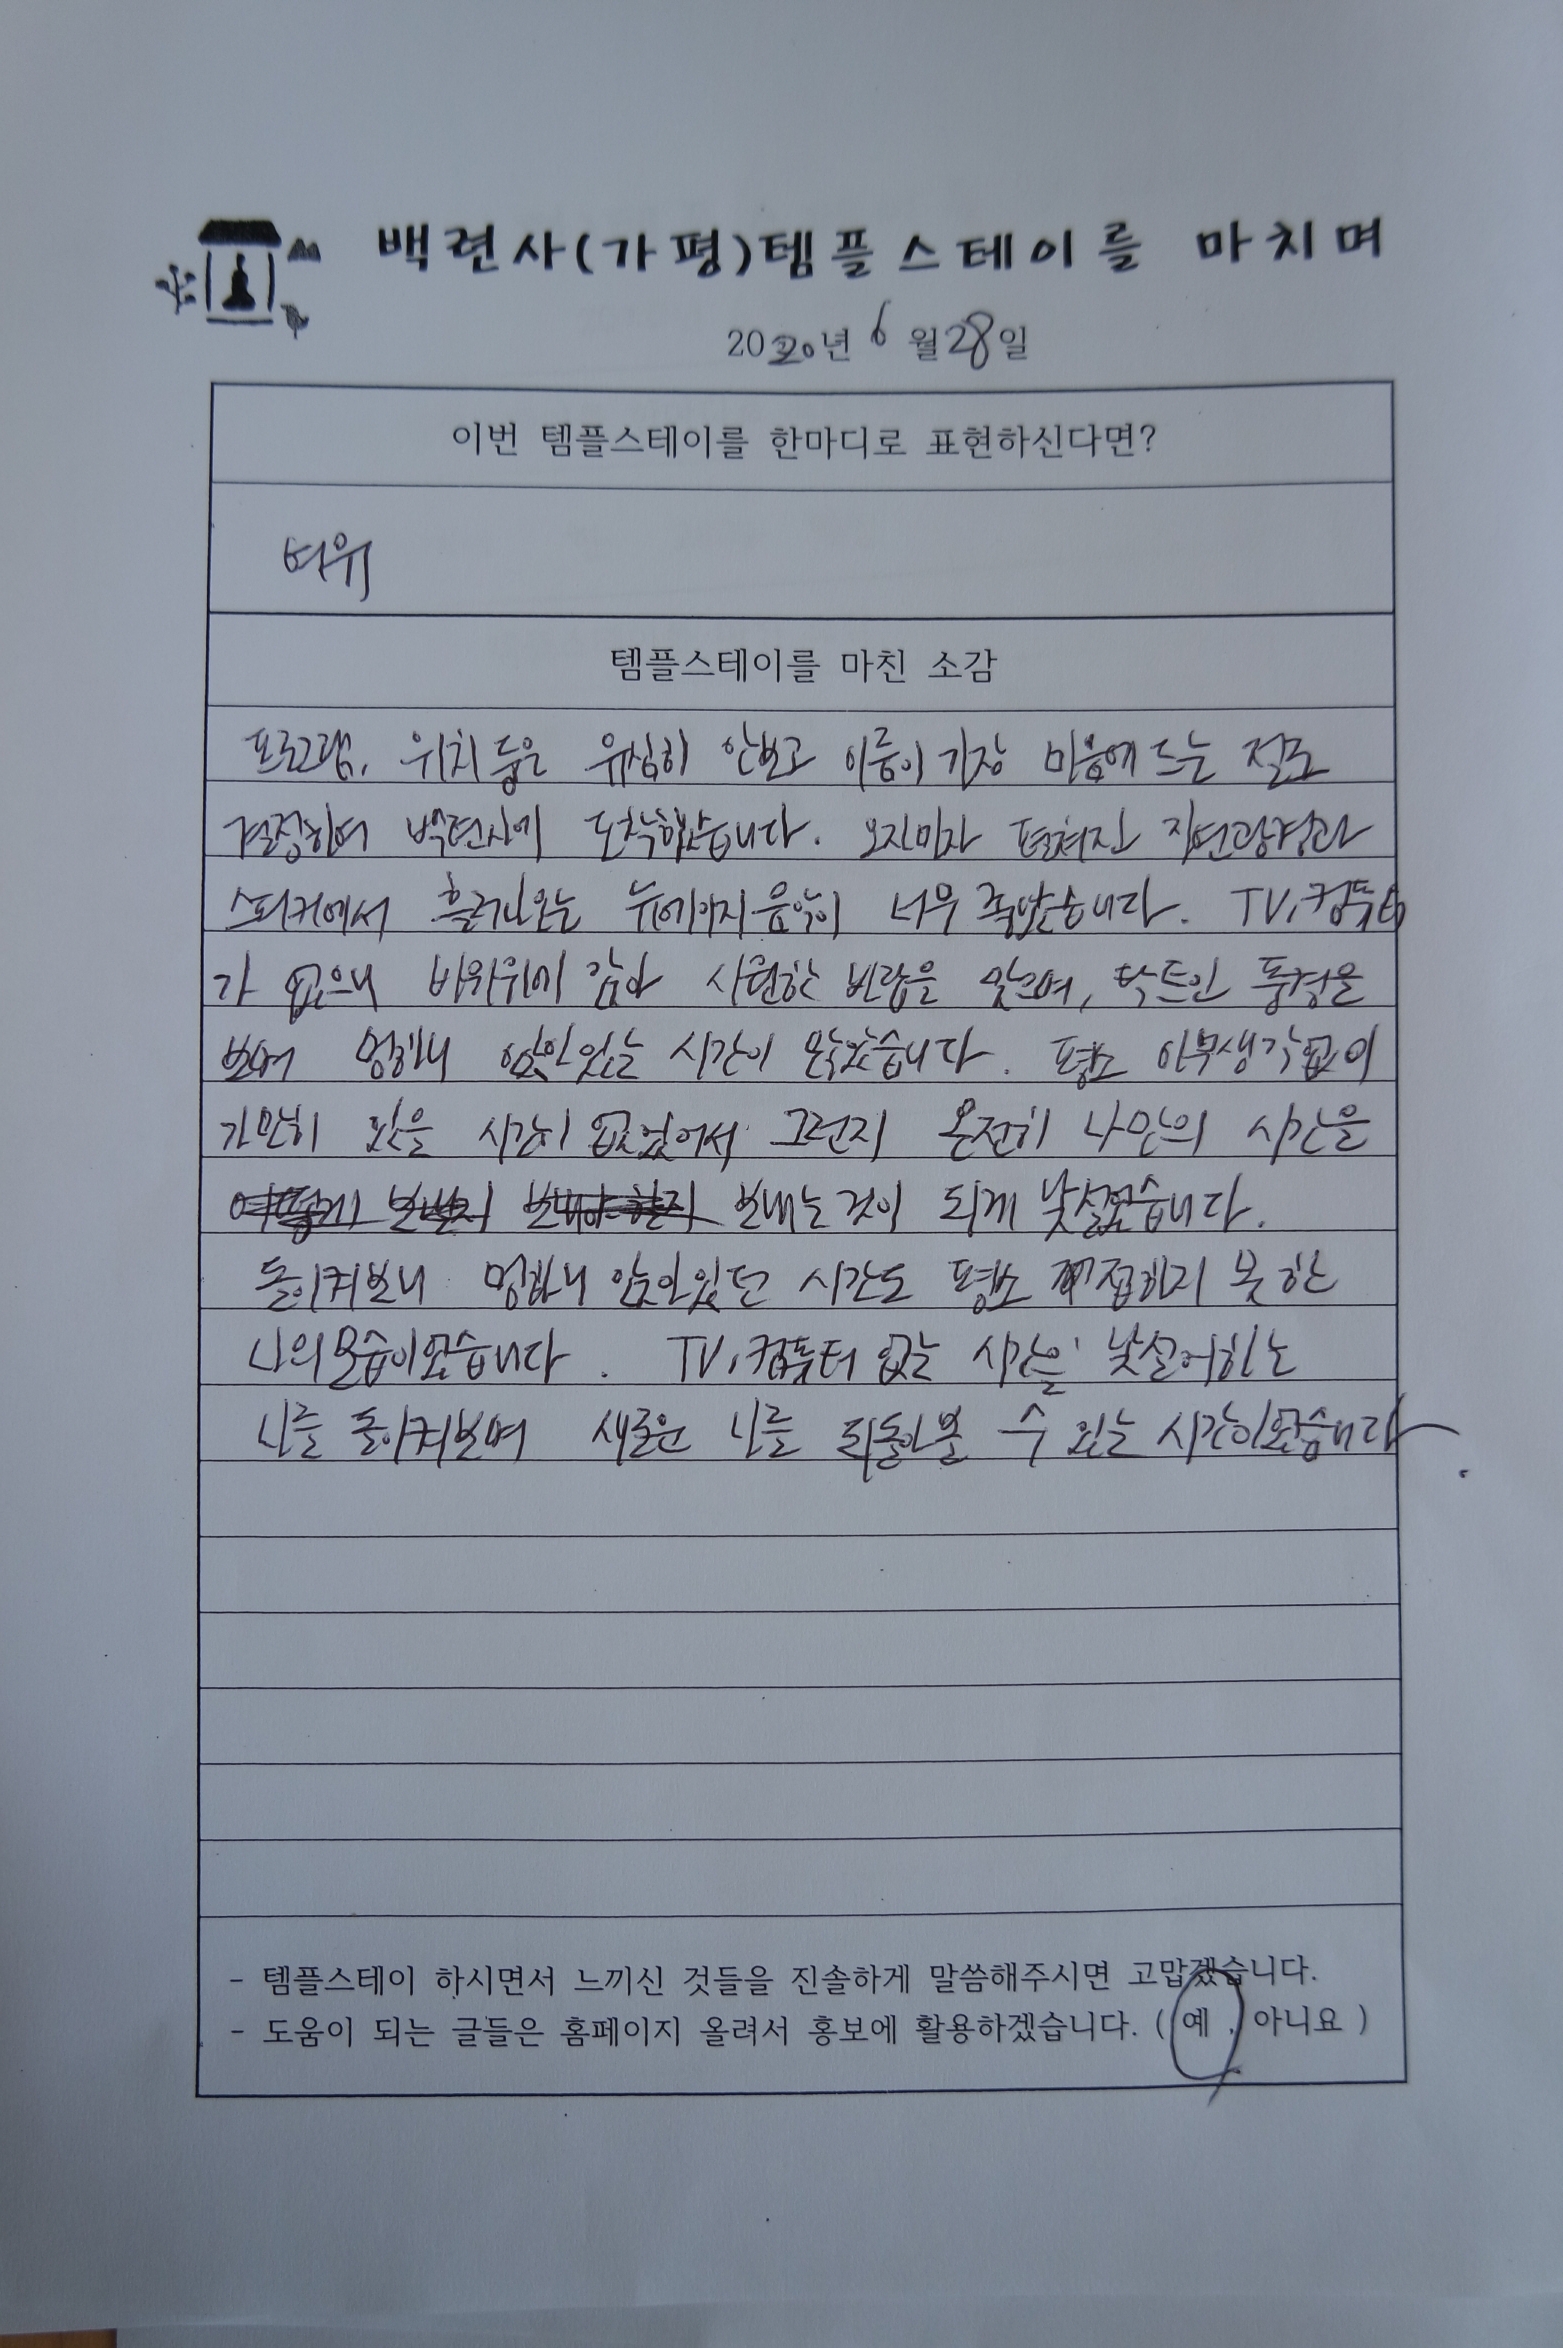 백련사(가평)템플스테이를 마치며
2020년 6월 28일
이번 템플스테이를 한마디로 표현하신다면?
여유
템플스테이를 마친 소감
프로그램, 위치 등은 유심히 안보고 이름이 가장 마음에 드는 절로
결정하여 백련사에 도착했습니다. 오자마자 펼쳐진 자연광경과
스피커에서 흘러나오는 뉴에이지음악이 너무 좋았습니다. TV, 컴퓨터
가 없으니 바위위에 앉아 시원한 바람을 맞으며, 탁트인 풍경을
보며 멍하니 앉아있는 시간이 많았습니다. 평소 아무생각없이
가만히 있을 시간이 없었어서 그런지 온전히 나만의 시간을
보내는것이 되게 낯설었습니다.
돌이켜보니 멍하니 앉아있던 시간도 평소 접하지 못한
나의모습이었습니다. TV, 컴퓨터 없는 시간을 낯설어하는
나를 돌이켜보며 새로운 나를 되돌아볼 수 있는 시간이었습니다.
- 템플스테이 하시면서 느끼신 것들을 진솔하게 말씀해주시면 고맙겠습니다.
- 도움이 되는 글들은 홈페이지 올려서 홍보에 활용하겠습니다. ( 예 , 아니요 )